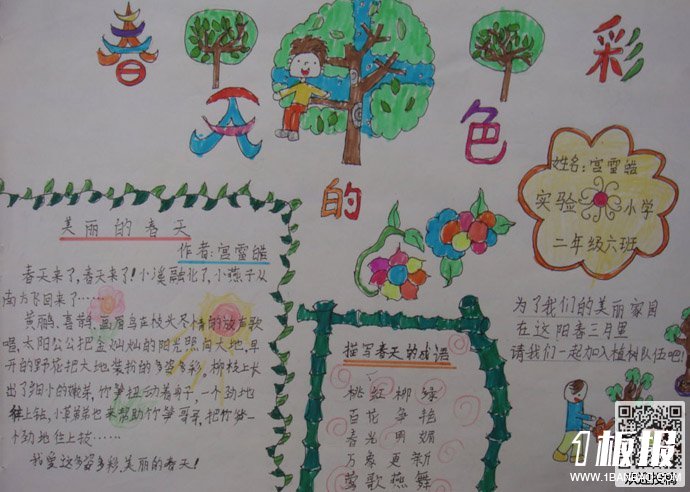 春天的色彩
美丽的春天
作者:宫雪皓
春天来了,春天来了!小溪融化了,小燕子从
南方飞回来了……
黄鹂、喜鹊、画眉鸟声枝头尽情的放声歌
唱,太阳公公把金灿灿的阳光照向大地,早
开的野花把大地装扮的多姿多彩,柳枝上长
出了细小的嫩芽,竹笋扭动着身子,一个劲地
往上钻,小草弟弟也来帮助竹笋哥哥,把竹笋一
个劲地往上拔……
我爱这多姿多彩,美丽的春天!
描写春天的成语
桃红柳绿
百花争艳
春光明媚
万象更新
莺歌燕舞
姓名:宫雪皓
实验小学
二年级六班
为了我们的美丽家园
在这阳春三月里
请我们一起加入植树队伍吧!
1板报
WWW.1BANBAO.COM
欢迎投稿